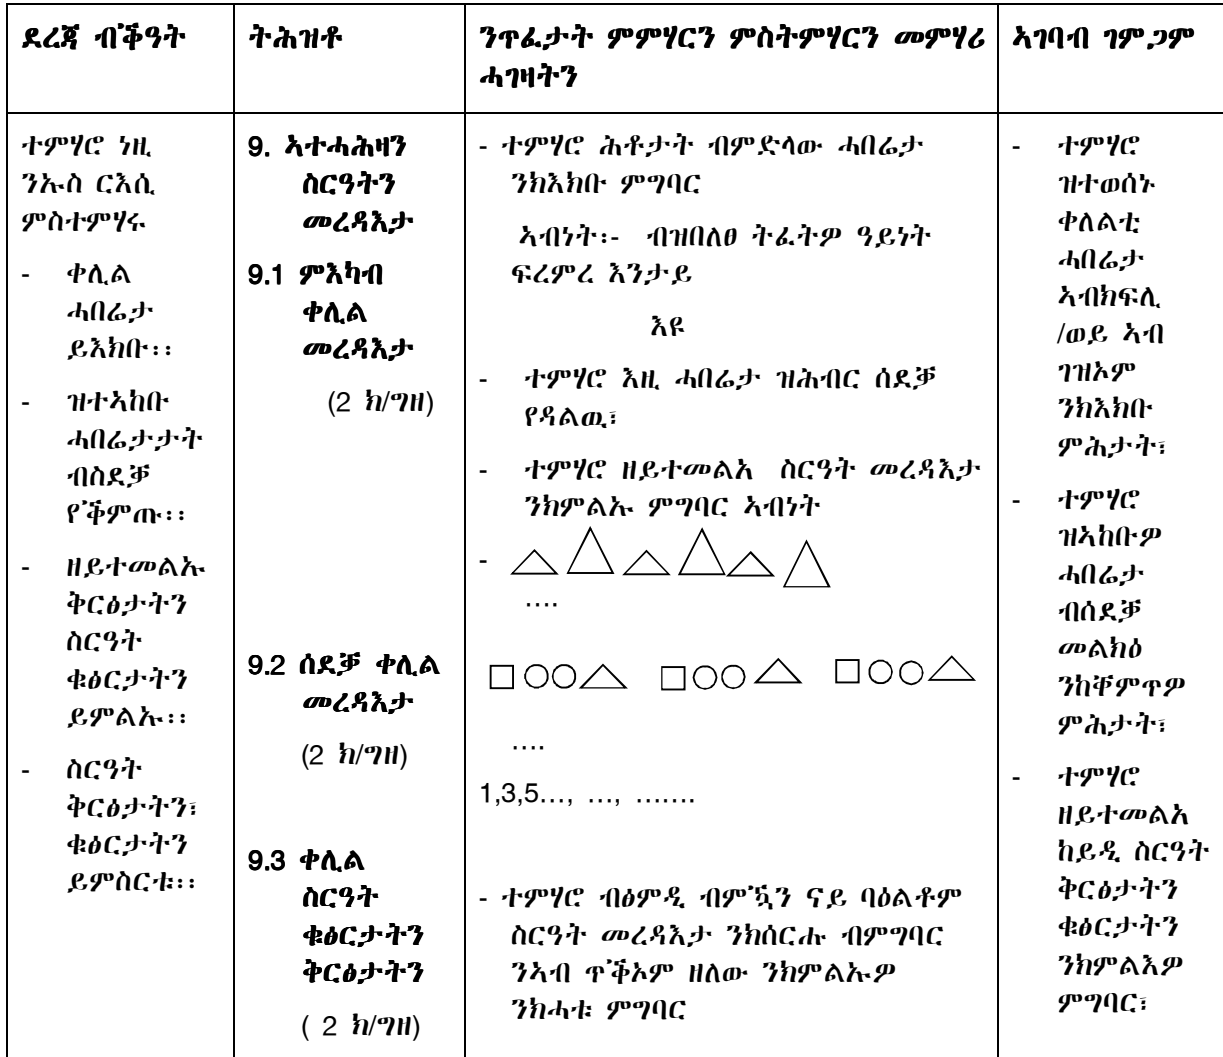 ደረጃ ብቕዓት
ትሕዝቶ
ንጥፈታት ምምሃርን ምስትምሃርን መምሃሪ
ሓገዛትን
ኣገባብ ገምጋም
ተምሃሮ ነዚ
ንኡስ ርእሲ
ምስተምሃሩ
- ቀሊል
ሓበሬታ
ይእክቡ፡፡
- ዝተኣከቡ
ሓበሬታታት
ብስደቓ
የቕምጡ፡፡
- ዘይተመልኡ
ቅርፅታትን
ስርዓት
ቁፅርታትን
ይምልኡ፡፡
- ስርዓት
ቅርፅታትን፣
ቁፅርታትን
ይምስርቱ፡፡
9. ኣተሓሕዛን
ስርዓትን
መረዳእታ
9.1 ምእካብ
ቀሊል
መረዳእታ
(2 ክ/ግዘ)
9.2 ሰደቓ ቀሊል
መረዳእታ
(2 ክ/ግዘ)
9.3 ቀሊል
ስርዓት
ቁፅርታትን
ቅርፅታትን
( 2 ክ/ግዘ)
- ተምሃሮ ሕቶታት ብምድላው ሓበሬታ
ንክእክቡ ምግባር
ኣብነት፡- ብዝበለፀ ትፈትዎ ዓይነት
ፍረምረ እንታይ
እዩ
- ተምሃሮ እዚ ሓበሬታ ዝሕብር ሰደቓ
የዳልዉ፣
- ተምሃሮ ዘይተመልአ ስርዓት መረዳእታ
ንክምልኡ ምግባር ኣብነት
-
....
....
1,3,5..., ..., .......
- ተምሃሮ ብፅምዲ ብም዗ን ናይ ባዕልቶም
ስርዓት መረዳእታ ንክሰርሑ ብምግባር
ንኣብ ጥቕኦም ዘለው ንክምልኡዎ
ንክሓቱ ምግባር
- ተምሃሮ
ዝተወሰኑ
ቀለልቲ
ሓበሬታ
ኣብክፍሊ
/ወይ ኣብ
ገዝኦም
ንክእክቡ
ምሕታት፣
- ተምሃሮ
ዝኣከቡዎ
ሓበሬታ
ብሰደቓ
መልክዕ
ንከቐምጥዎ
ምሕታት፣
- ተምሃሮ
ዘይተመልአ
ከይዲ ስርዓት
ቅርፅታትን
ቁፅርታትን
ንክምልእዎ
ምግባር፣